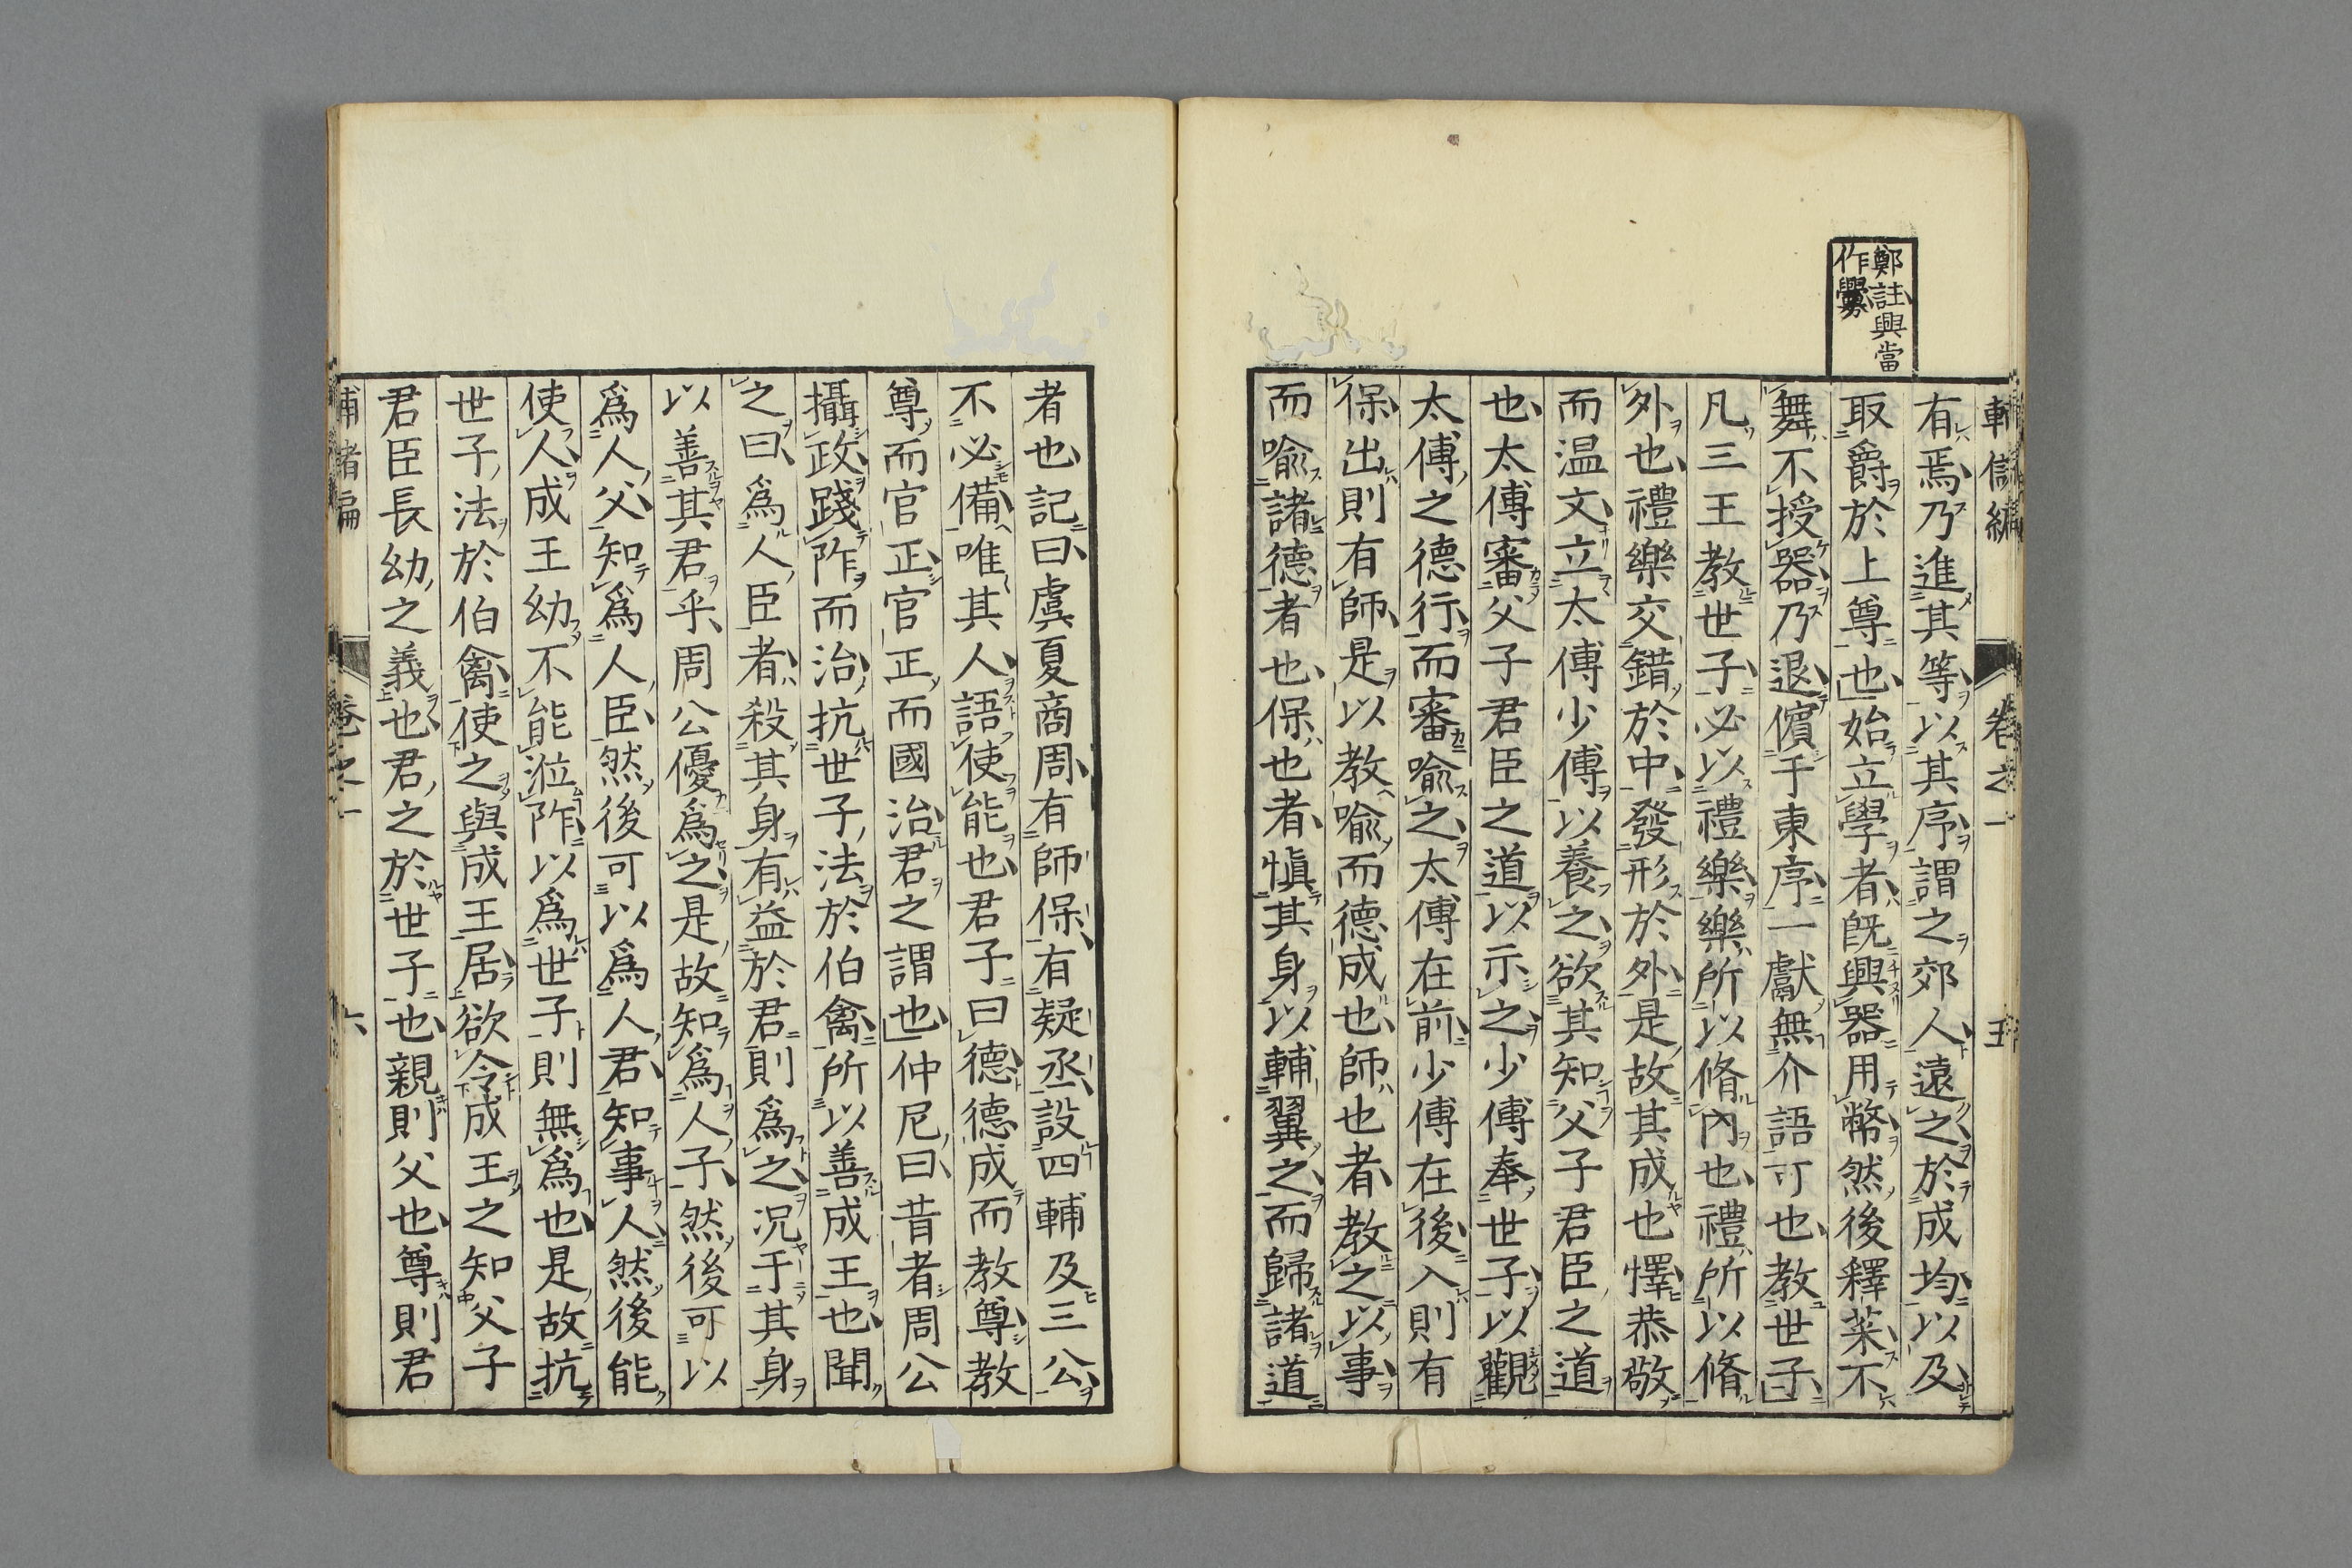 鄭註興當
作釁
有焉乃進其等以其序謂之郊人遠之於成均以及
取爵於上尊也始立學者既興器用幣然後釋菜不
舞不授器乃退儐于東序一獻無介語可也教世子
凡三王教世子必以禮樂樂所以脩內也禮所以脩
外也禮樂交錯於中發形於外是故其成也懌恭敬
而温文立太傅少傅以養之欲其知父子君臣之道
也太傅審父子君臣之道以示之少傅奉世子以觀
太傅之德行而審喩之太傅在前少傅在後入則有
保出則有師是以教喩而德成也師也者教之以事
而喩諸德者也保也者愼其身以輔翼之而歸諸道
者也記曰虞夏商周有師保有疑丞設四輔及三公
不必備唯其人語使能也君子曰德德成而教尊教
尊而官正官正而國治君之謂也仲尼曰昔者周公
攝政踐阼而治抗世子法於伯禽所以善成王也聞
之曰爲人臣者殺其身有益於君則爲之況于其身
以善其君乎周公優爲之是故知爲人子然後可以
爲人父知爲人臣然後可以爲人君知事人然後能
使人成王幼不能涖阼以爲世子則無爲也是故抗
世子法於伯禽使之與成王居欲令成王之知父子
君臣長幼之義也君之於世子也親則父也尊則君
卷之一
六